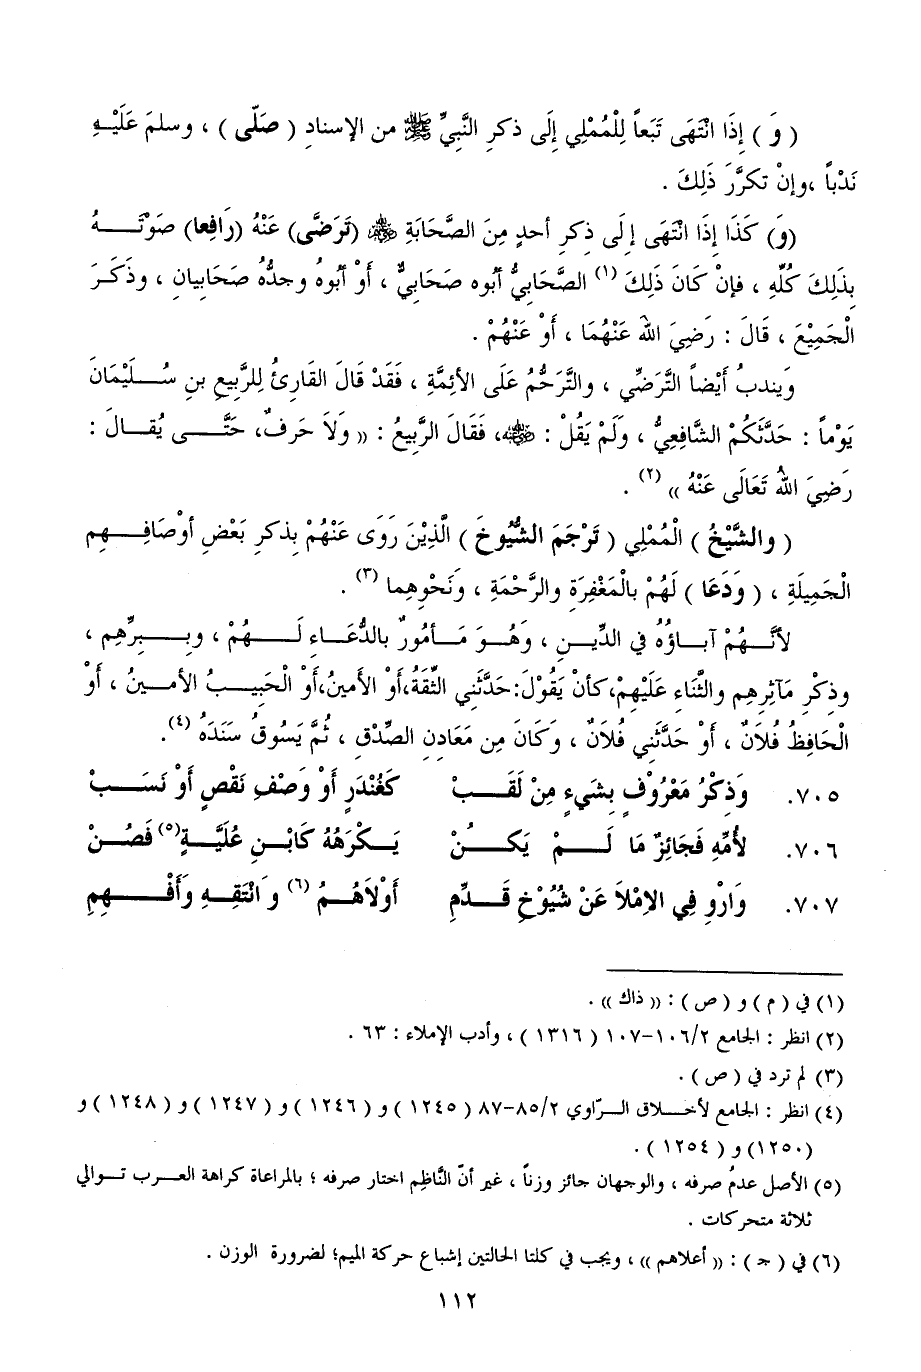 ( وَ ) إِذَا انْتَهَى تَبَعاً لِلْمُمْلِي إِلَى ذكرِ النَّبِيِّ ﷺ من الإسنادِ ( صَلَّى ) ، وسلمَ عَلَيْهِ
نَدْباً ،وإنْ تكرَّرَ ذَلِكَ .
(وَ) كَذَا إِذَا انْتَهَى إِلَى ذِكرِ أحدٍ مِنَ الصَّحَابَةِ ﷺ (تَرَضَّى) عَنْهُ (رَافِعا) صَوْتَهُ
بِذَلِكَ كُلِّهِ ، فإنْ كَانَ ذَلِكَ (١) الصَّحَابِيُّ أبُوه صَحَابِيٌّ ، أَوْ أبُوهُ وجدُّهُ صَحَابيان ، وذَكَرَ
الْجَمِيْعَ ، قَالَ : رَضِيَ اللهُ عَنْهُمَا ، أَوْ عَنْهُمْ .
وَيندبُ أَيْضاً التَّرَضِّي ، والتَّرَحُّمُ عَلَى الأئِمَّةِ ، فَقَدْ قَالَ القَارِئُ لِلرَّبِيعِ بنِ سُلَيْمَانَ
يَوْماً : حَدَّثَكُمْ الشَّافِعِيُّ ، وَلَمْ يَقُلْ : ﷺ، فَقَالَ الرَّبِيعُ : « ولَا حَرفٌ، حَتَّى يُقالَ :
رَضِيَ اللهُ تَعَالَى عَنْهُ » (٢) .
( والشَّيْخُ ) الْمُمْلِي ( تَرْجَمَ الشُّيُوخَ ) الَّذِيْنَ رَوَى عَنْهُمْ بِذكرِ بَعْضِ أوْصَافِهِم
الْجَمِيلَةِ ، ( وَدَعَا ) لَهُمْ بالْمَغْفِرَةِ والرَّحْمَةِ ، وَنَحْوِهِما (٣) .
لأنَّهُمْ آباؤُهُ في الدِّينِ ، وَهُوَ مَأمُورٌ بالدُّعَاءِ لَهُمْ ، وبِرِّهِم ،
وذِكْرِ مَآثِرِهِم والثَّنَاءِ عَلَيْهِمْ،كأنْ يَقُوْلَ:حَدَّثَنِي الثِّقَةُ،أَوْ الأمينُ،أَوْ الْحَبِيبُ الأمينُ ، أَوْ
الْحَافِظُ فُلَانٌ ، أَوْ حَدَّثَنِي فُلَانٌ ، وَكَانَ مِن مَعَادِنِ الصِّدْقِ ، ثُمَّ يَسُوقُ سَنَدَهُ (٤).
٧٠٥. وَذِكْرُ مَعْرُوْفٍ بِشَيءٍ مِنْ لَقَبْ كَغُنْدَرٍ أَوْ وَصْفِ نَقْصٍ أَوْ نَسَبْ
٧٠٦. لأُمِّهِ فَجَائِزٌ مَا لَمْ يَكُنْ يَكْرَهُهُ كَابْنِ عُلَيَّةٍ(٥) فَصُنْ
٧٠٧. وَارْوِ فِي الإِمْلاَ عَنْ شُيُوْخٍ قَدِّمِ أَوْلَاهُمُ (٦) وَانْتَقِهِ وَأَفْهِمِ
(١) في ( م ) و ( ص ) : « ذاك » .
(٢) انظر : الجامع ١٠٦/٢-١٠٧ ( ١٣١٦ ) ، وأدب الإملاء : ٦٣ .
(٣) لم ترد في ( ص ) .
(٤) انظر : الجامع لأخلاق الرّاوي ٨٥/٢-٨٧ ( ١٢٤٥ ) و ( ١٢٤٦ ) و ( ١٢٤٧ ) و ( ١٢٤٨ ) و
(١٢٥٠) و ( ١٢٥٤ ) .
(٥) الأصل عدمُ صرفه ، والوجهان جائز وزناً ، غير أنّ النَّاظِم اختار صرفه ؛ بالمراعاة كراهة العرب توالي
ثلاثة متحركات .
(٦) في ( جـ ) : « أعلاهم » ، ويجب في كلتا الحالتين إشباع حركة الميم؛ لضرورة الوزن .
١١٢